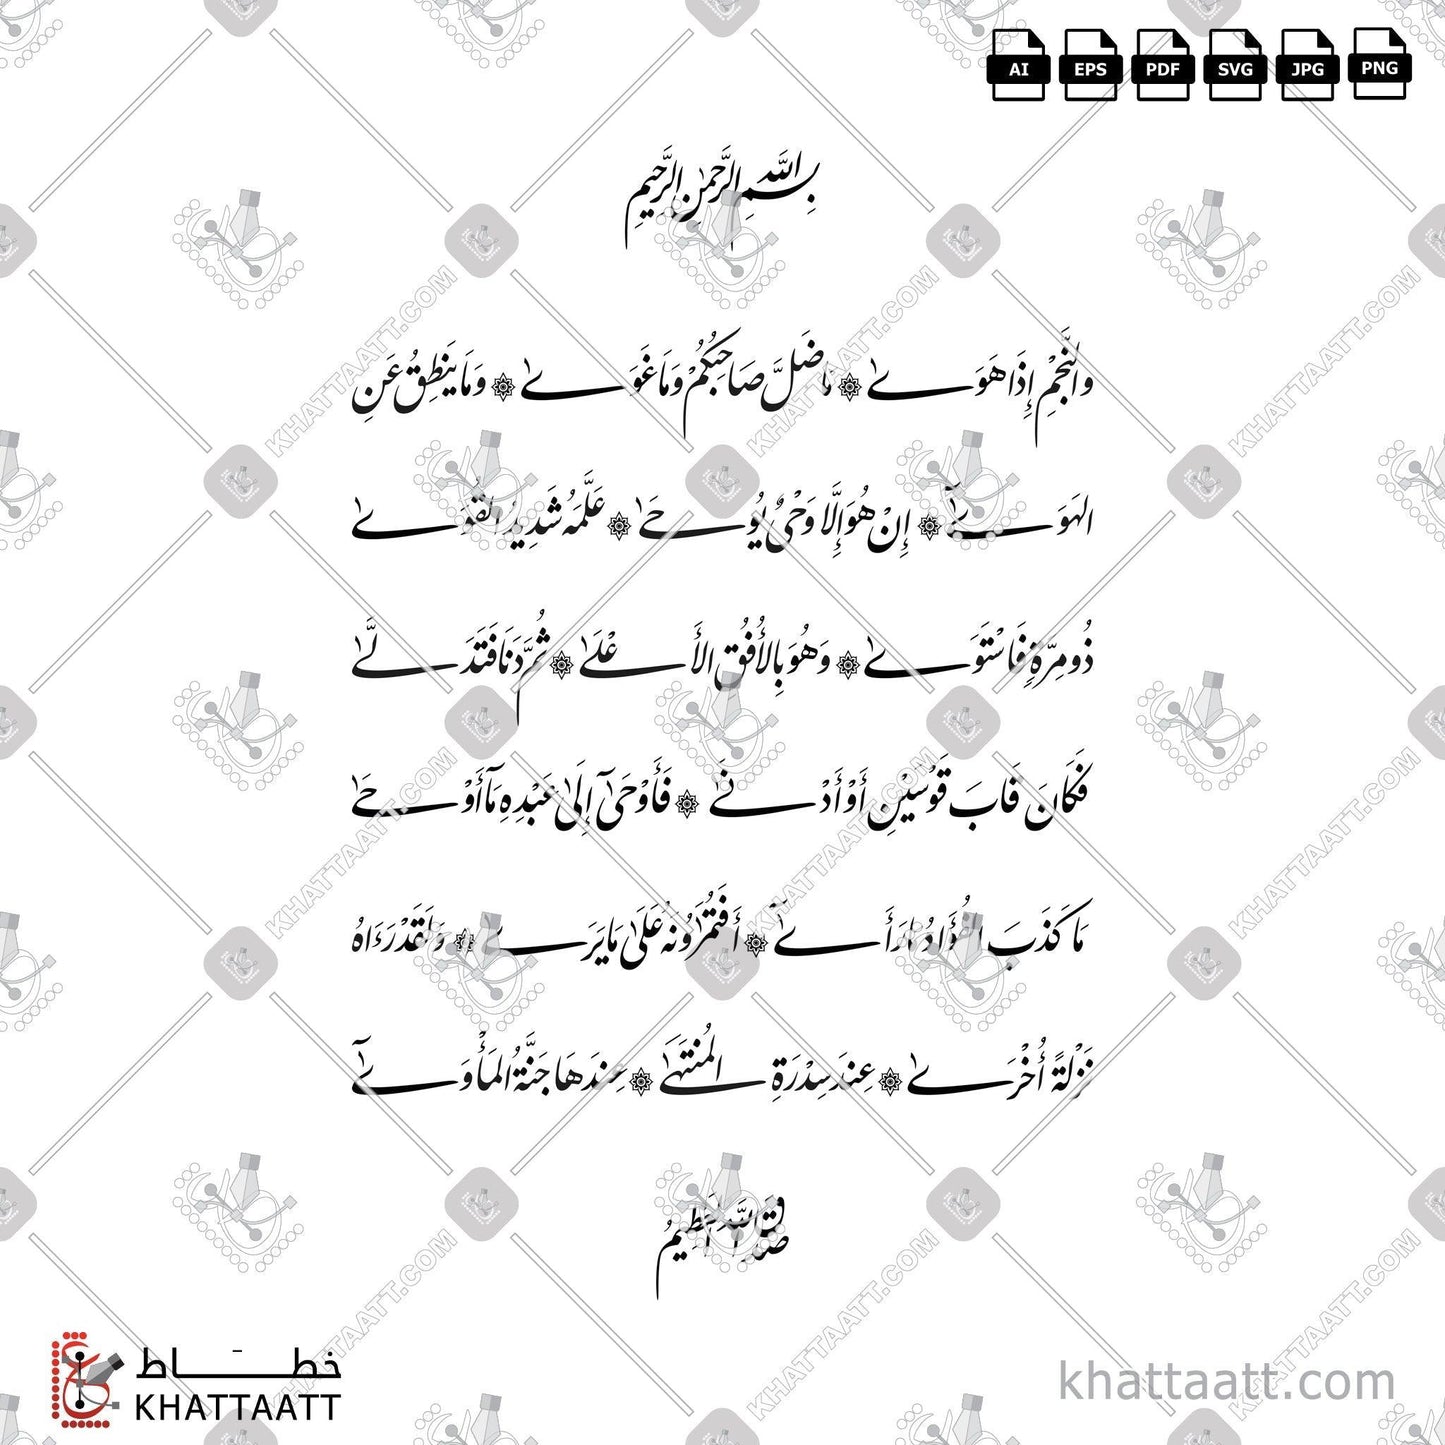 AI EPS PDF SVG JPG PNG
بِسْمِ اللَّهِ الرَّحْمٰنِ الرَّحِيمِ
وَالنَّجْمِ إِذَا هَوَىٰ ۞ مَا ضَلَّ صَاحِبُكُمْ وَمَا غَوَىٰ ۞ وَمَا يَنطِقُ عَنِ
الهَوَىٰٓ ۞ إِنْ هُوَ إِلَّا وَحْيٌ يُوحَىٰ ۞ عَلَّمَهُ شَدِيدُ القُوَىٰ
ذُو مِرَّةٍ فَاسْتَوَىٰ ۞ وَهُوَ بِالأُفُقِ الأَعْلَىٰ ۞ ثُمَّ دَنَا فَتَدَلَّىٰ
فَكَانَ قَابَ قَوْسَيْنِ أَوْ أَدْنَىٰ ۞ فَأَوْحَىٰٓ إِلَىٰ عَبْدِهِ مَآ أَوْحَىٰ
مَا كَذَبَ الفُؤَادُ مَا رَأَىٰٓ ۞ أَفَتُمَٰرُونَهُ عَلَىٰ مَا يَرَىٰ ۞ وَلَقَدْ رَءَاهُ
نَزْلَةً أُخْرَىٰ ۞ عِندَ سِدْرَةِ المُنتَهَىٰ ۞ عِندَهَا جَنَّةُ المَأْوَىٰٓ
صَدَقَ اللَّهُ العَظِيمُ
خطاط
KHATTAATT
khattaatt.com
KHATTAATT.COM